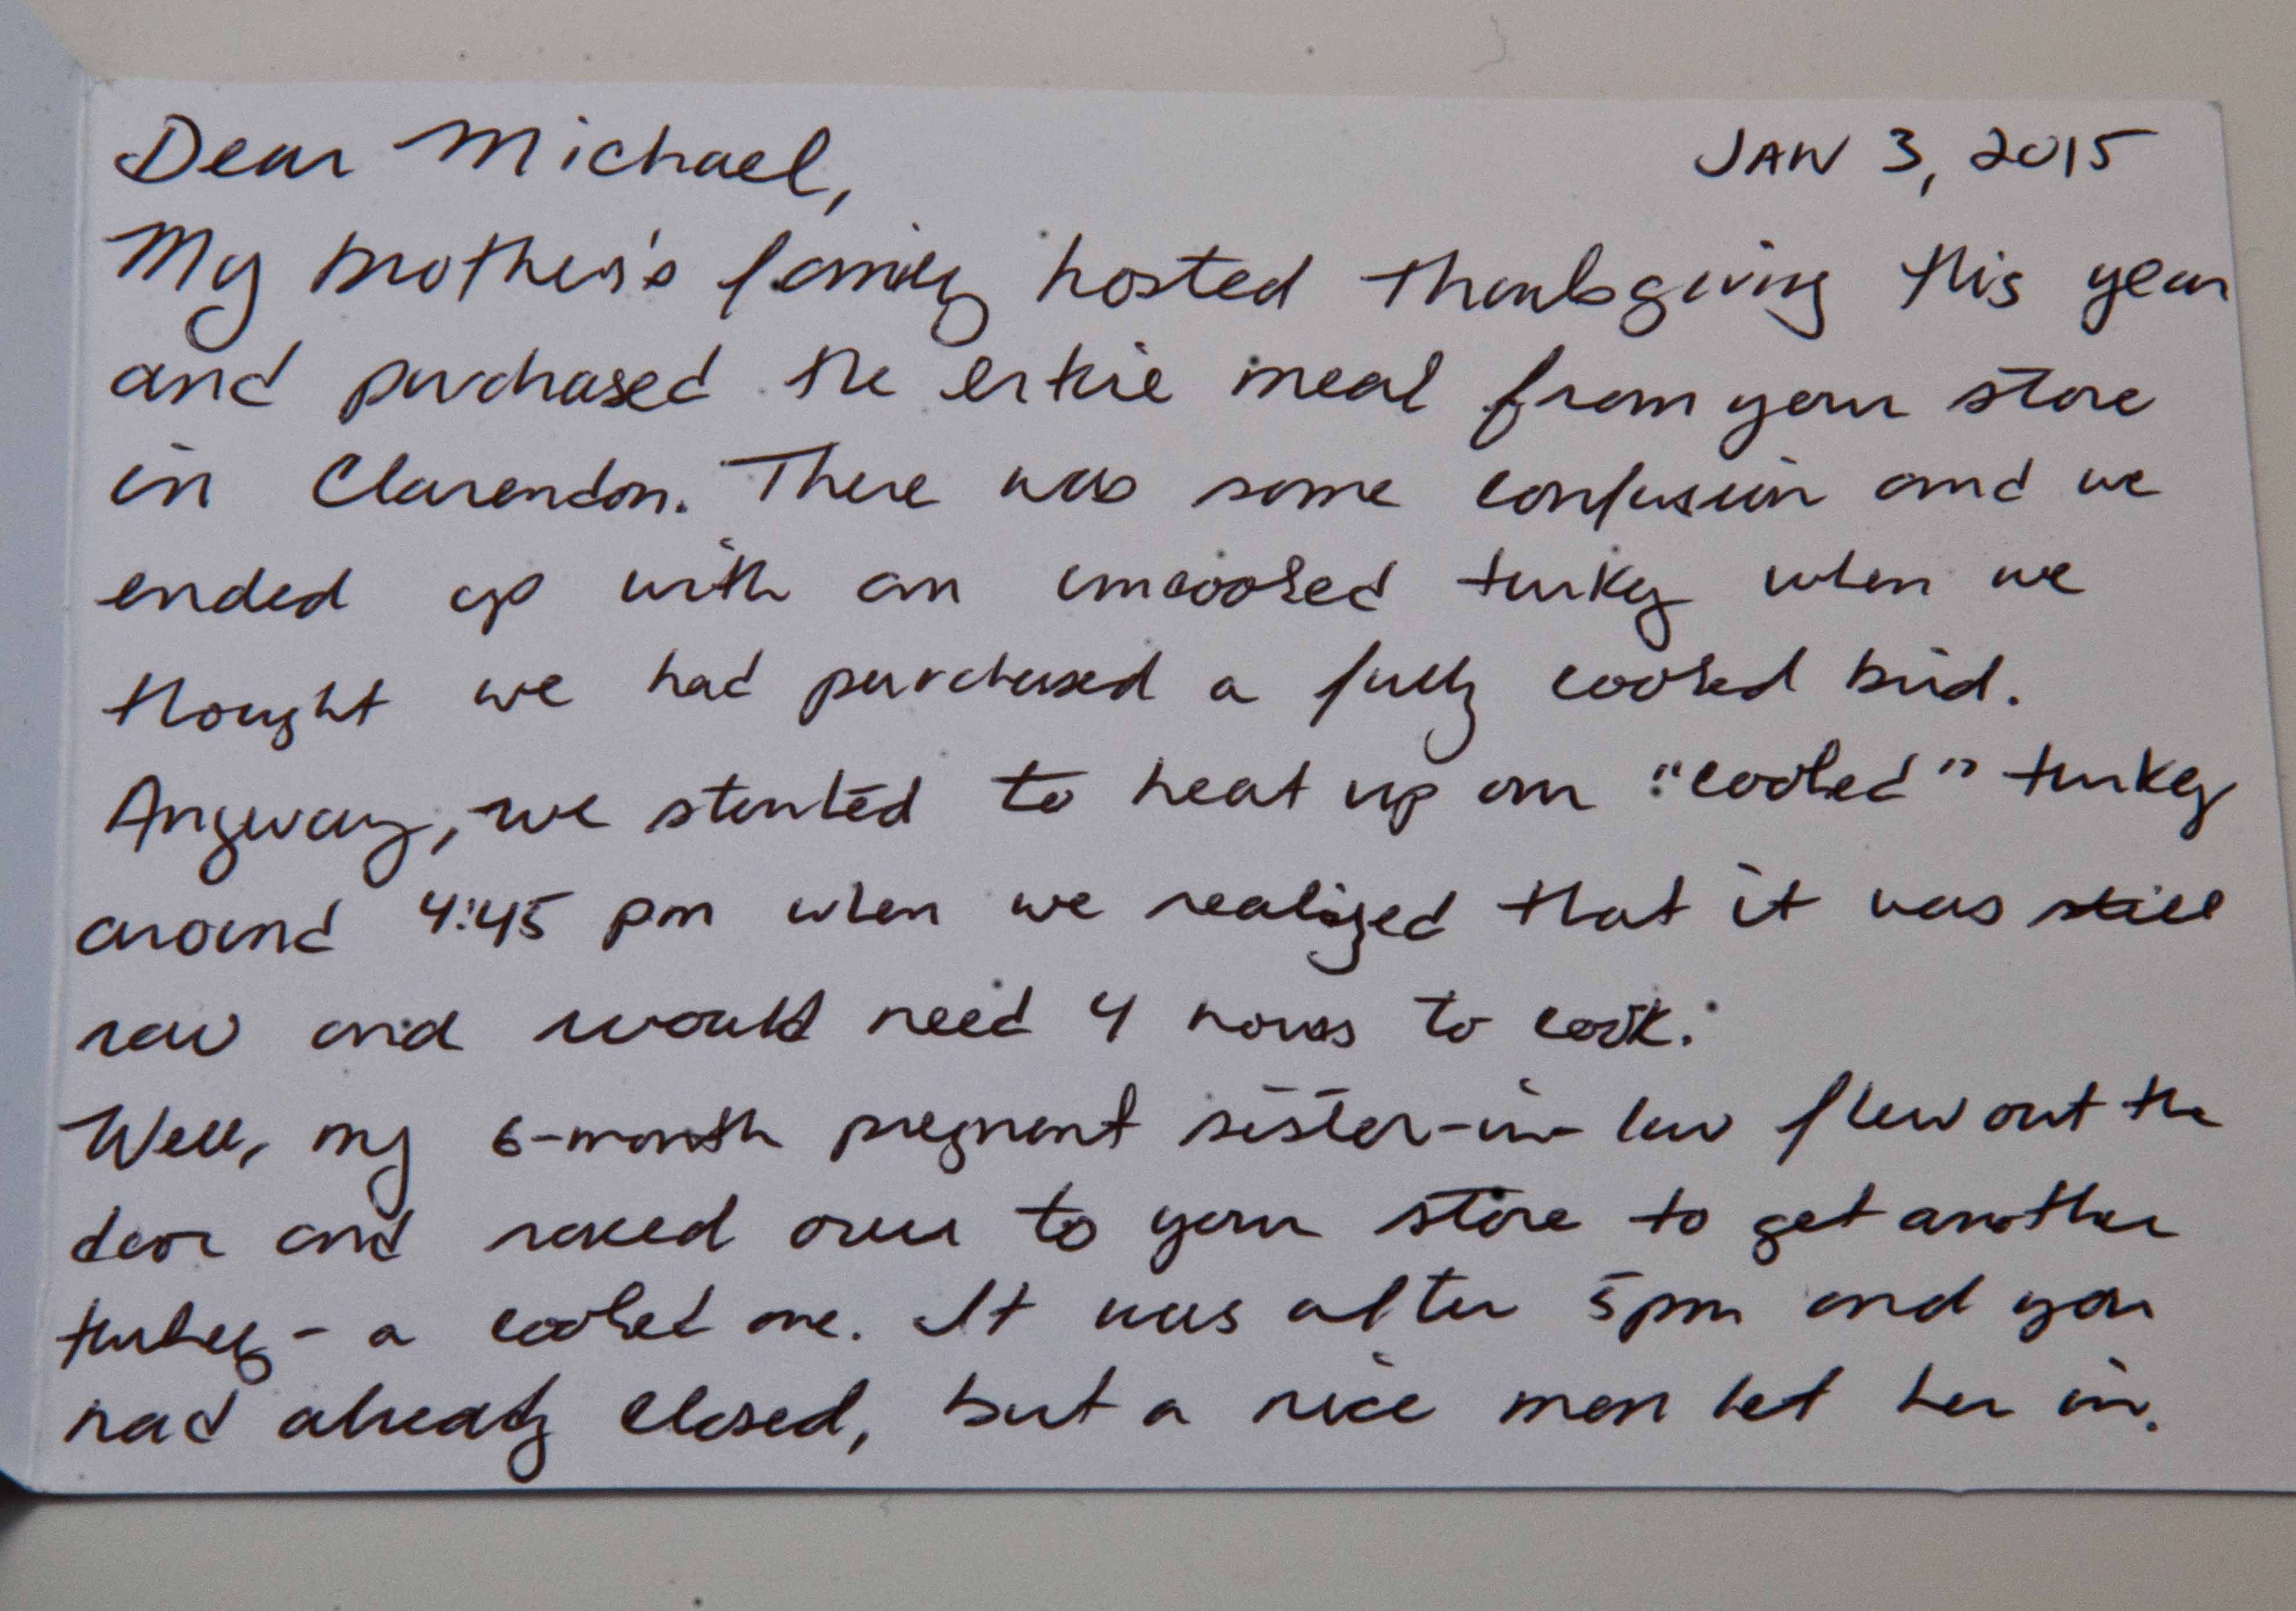 Dear Michael,
JAN 3, 2015
My brother's family hosted Thanksgiving this year
and purchased the entire meal from your store
in Clarendon. There was some confusion and we
ended up with an uncooked turkey when we
thought we had purchased a fully cooked bird.
Anyway, we started to heat up our "cooked" turkey
around 4:45 pm when we realized that it was still
raw and would need 4 hours to cook.
Well, my 6-month pregnant sister-in-law flew out the
door and raced over to your store to get another
turkey - a cooked one. It was after 5pm and you
had already closed, but a nice man let her in.